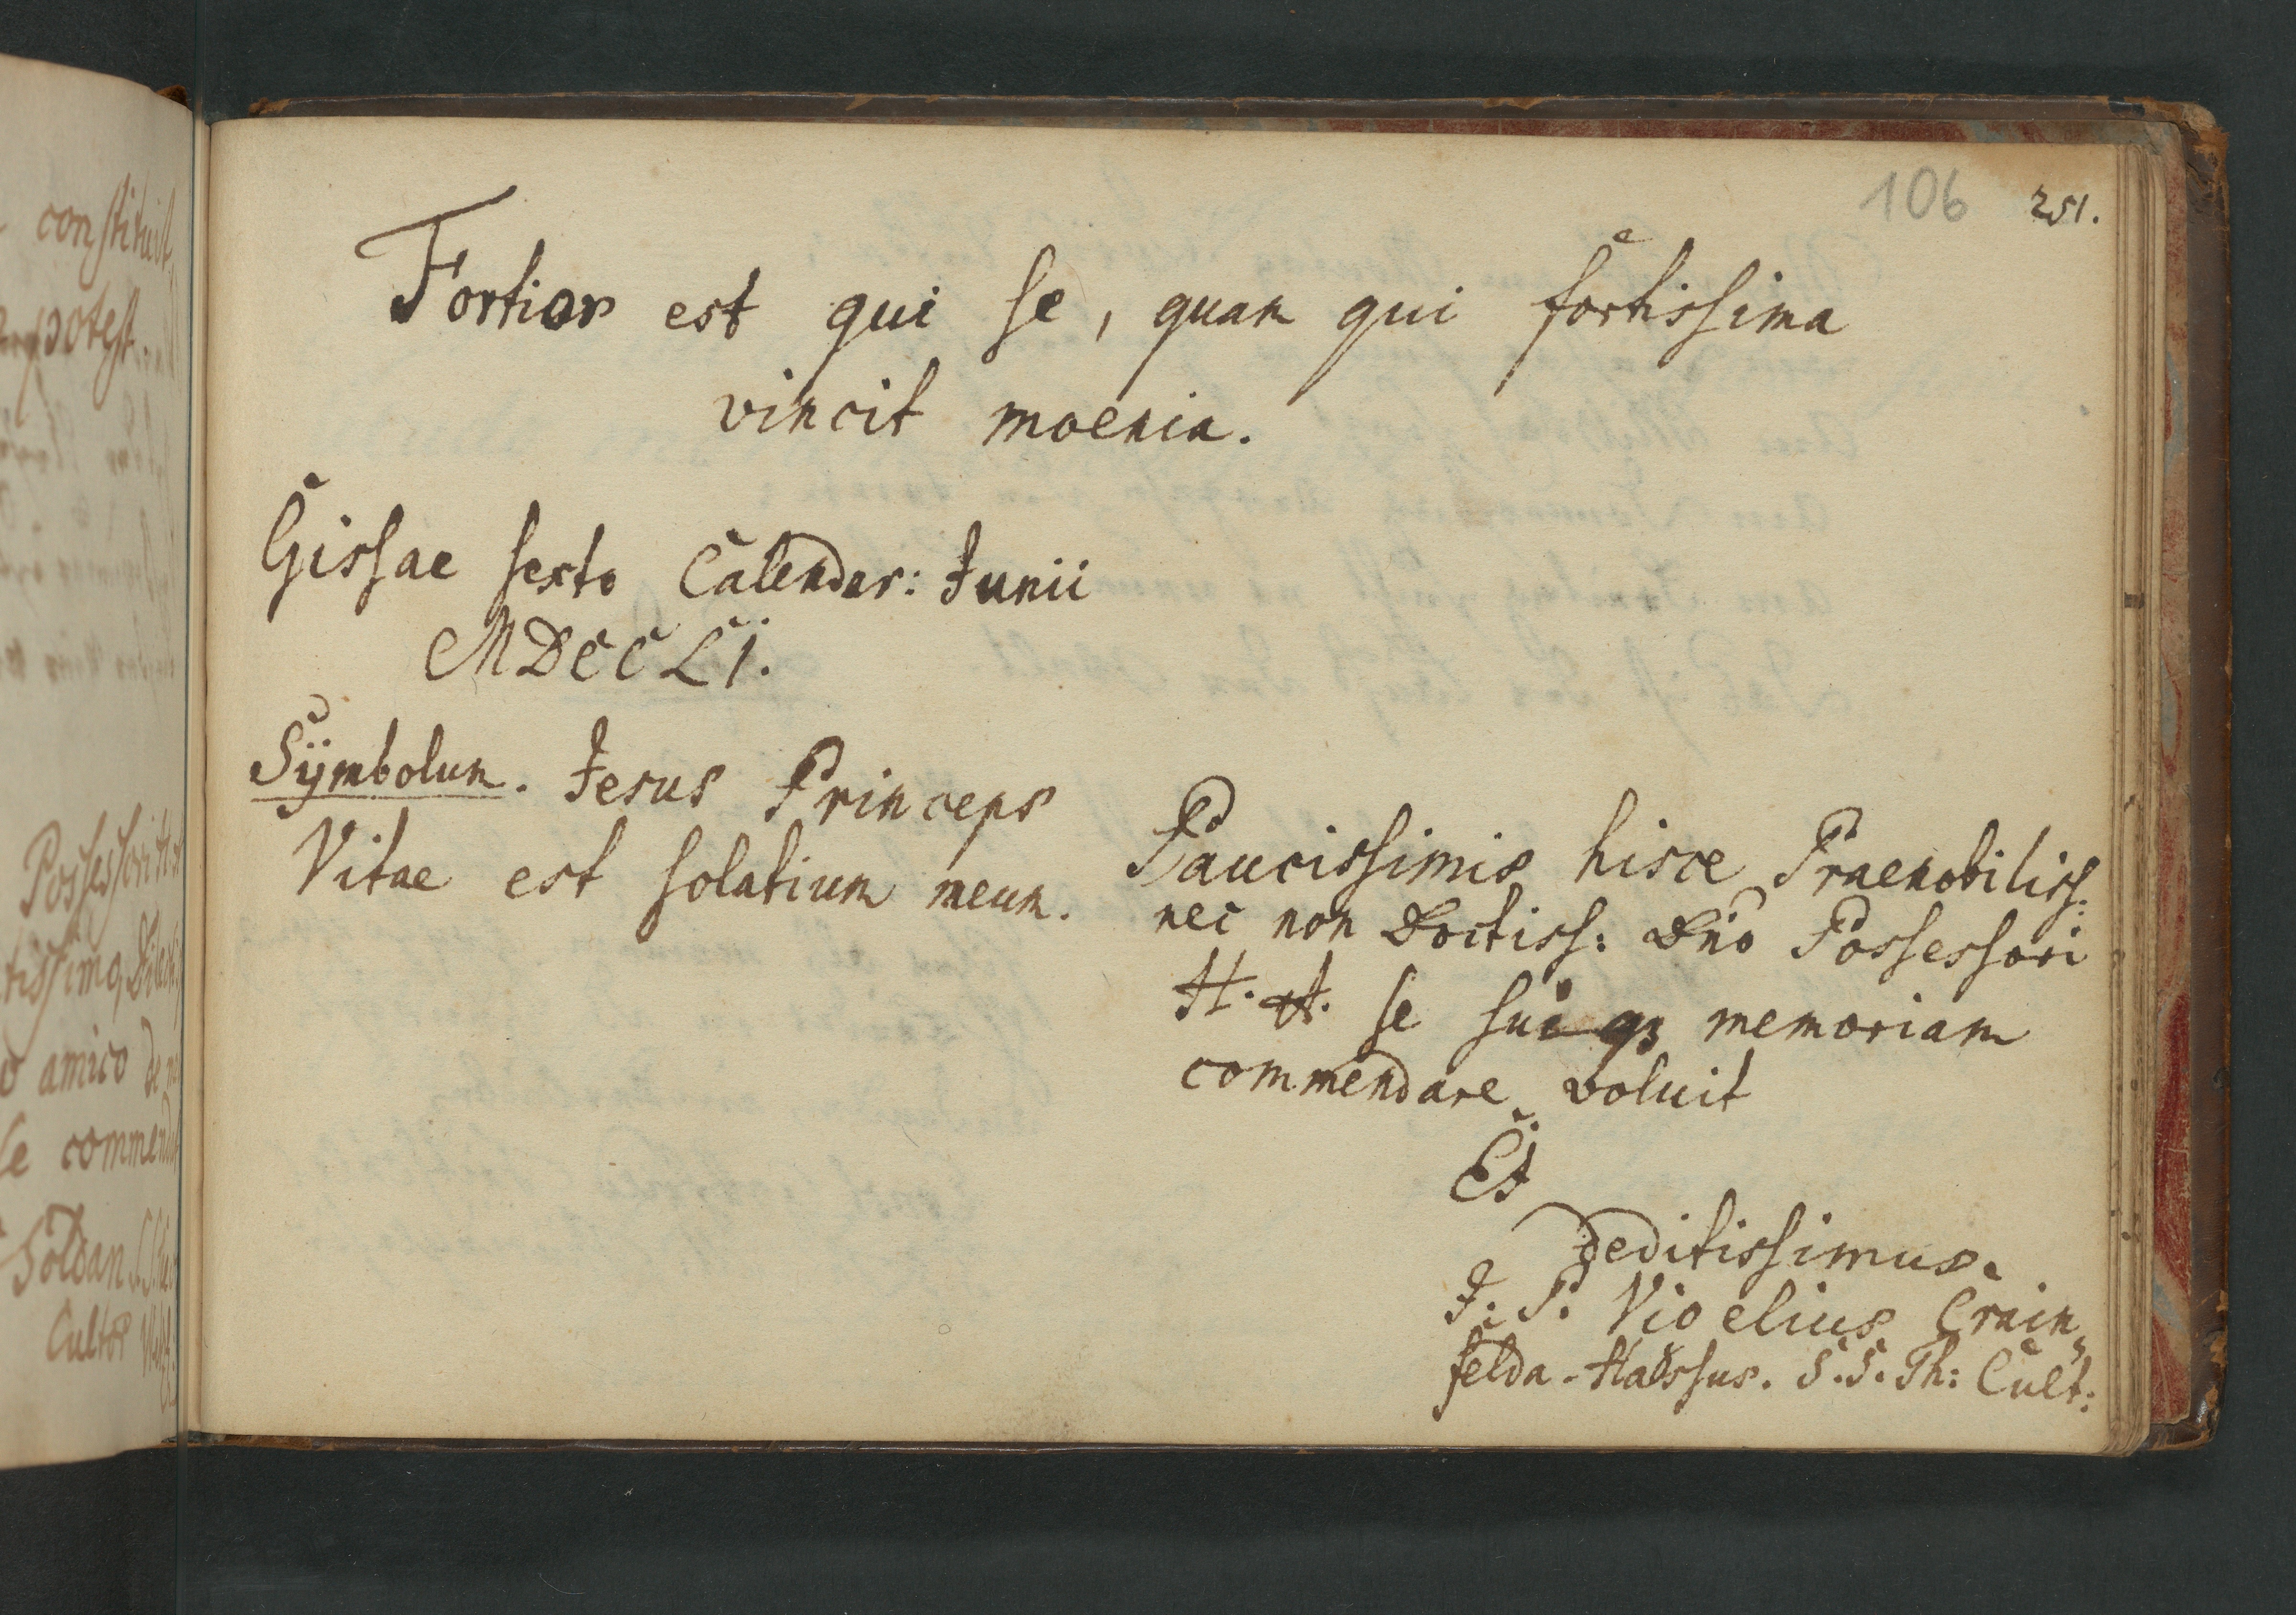 106 251.
Fortior est qui se, quam qui fortissima
vincit moenia.
Gissae sexto Calendar: Junii
MDCCLI.
Sÿmbolum. Jesus Princeps
Vitae est solatium meum.
Paucissimis hisce Praenobiliss:
nec non Doctiss: Dno Possessori
H. A. se sui qz memoriam
commendare voluit
Et
deditissimus.
J. P. Vioelius Crain„
felda-Hassus. S.S. Th: Cult:
constituit
potest.
Possessori
tissimo,
amico de
se commend
Soldan
Cultor